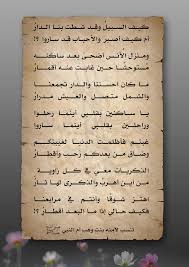 كيف السبيل وقد شطت بنا الدار
أم كيف أصبر والأحباب قد ساروا ؟!
ومنزل الأنس أضحى بعد ساكنه
مستوحشا حين غابت عنه أقمار
ما كان أحسننا والدار تجمعنا
والشمل متصل والعيش مدرار
يا ساكنين بقلبي أينما رحلوا
وراحلين بقلبي أينما ساروا
غبتم فأظلمت الدنيا لغيبتكم
وضاق من بعدكم رحب وأقطار
الذكريات معي في كل زاوية
من أين أهرب والذكرى لها نار
أهتز شوقا وأنتم في مرابعنا
فكيف حالي إذا ما البعد أقطار ؟!
تنسب لآمنه بنت وهب أم النبي